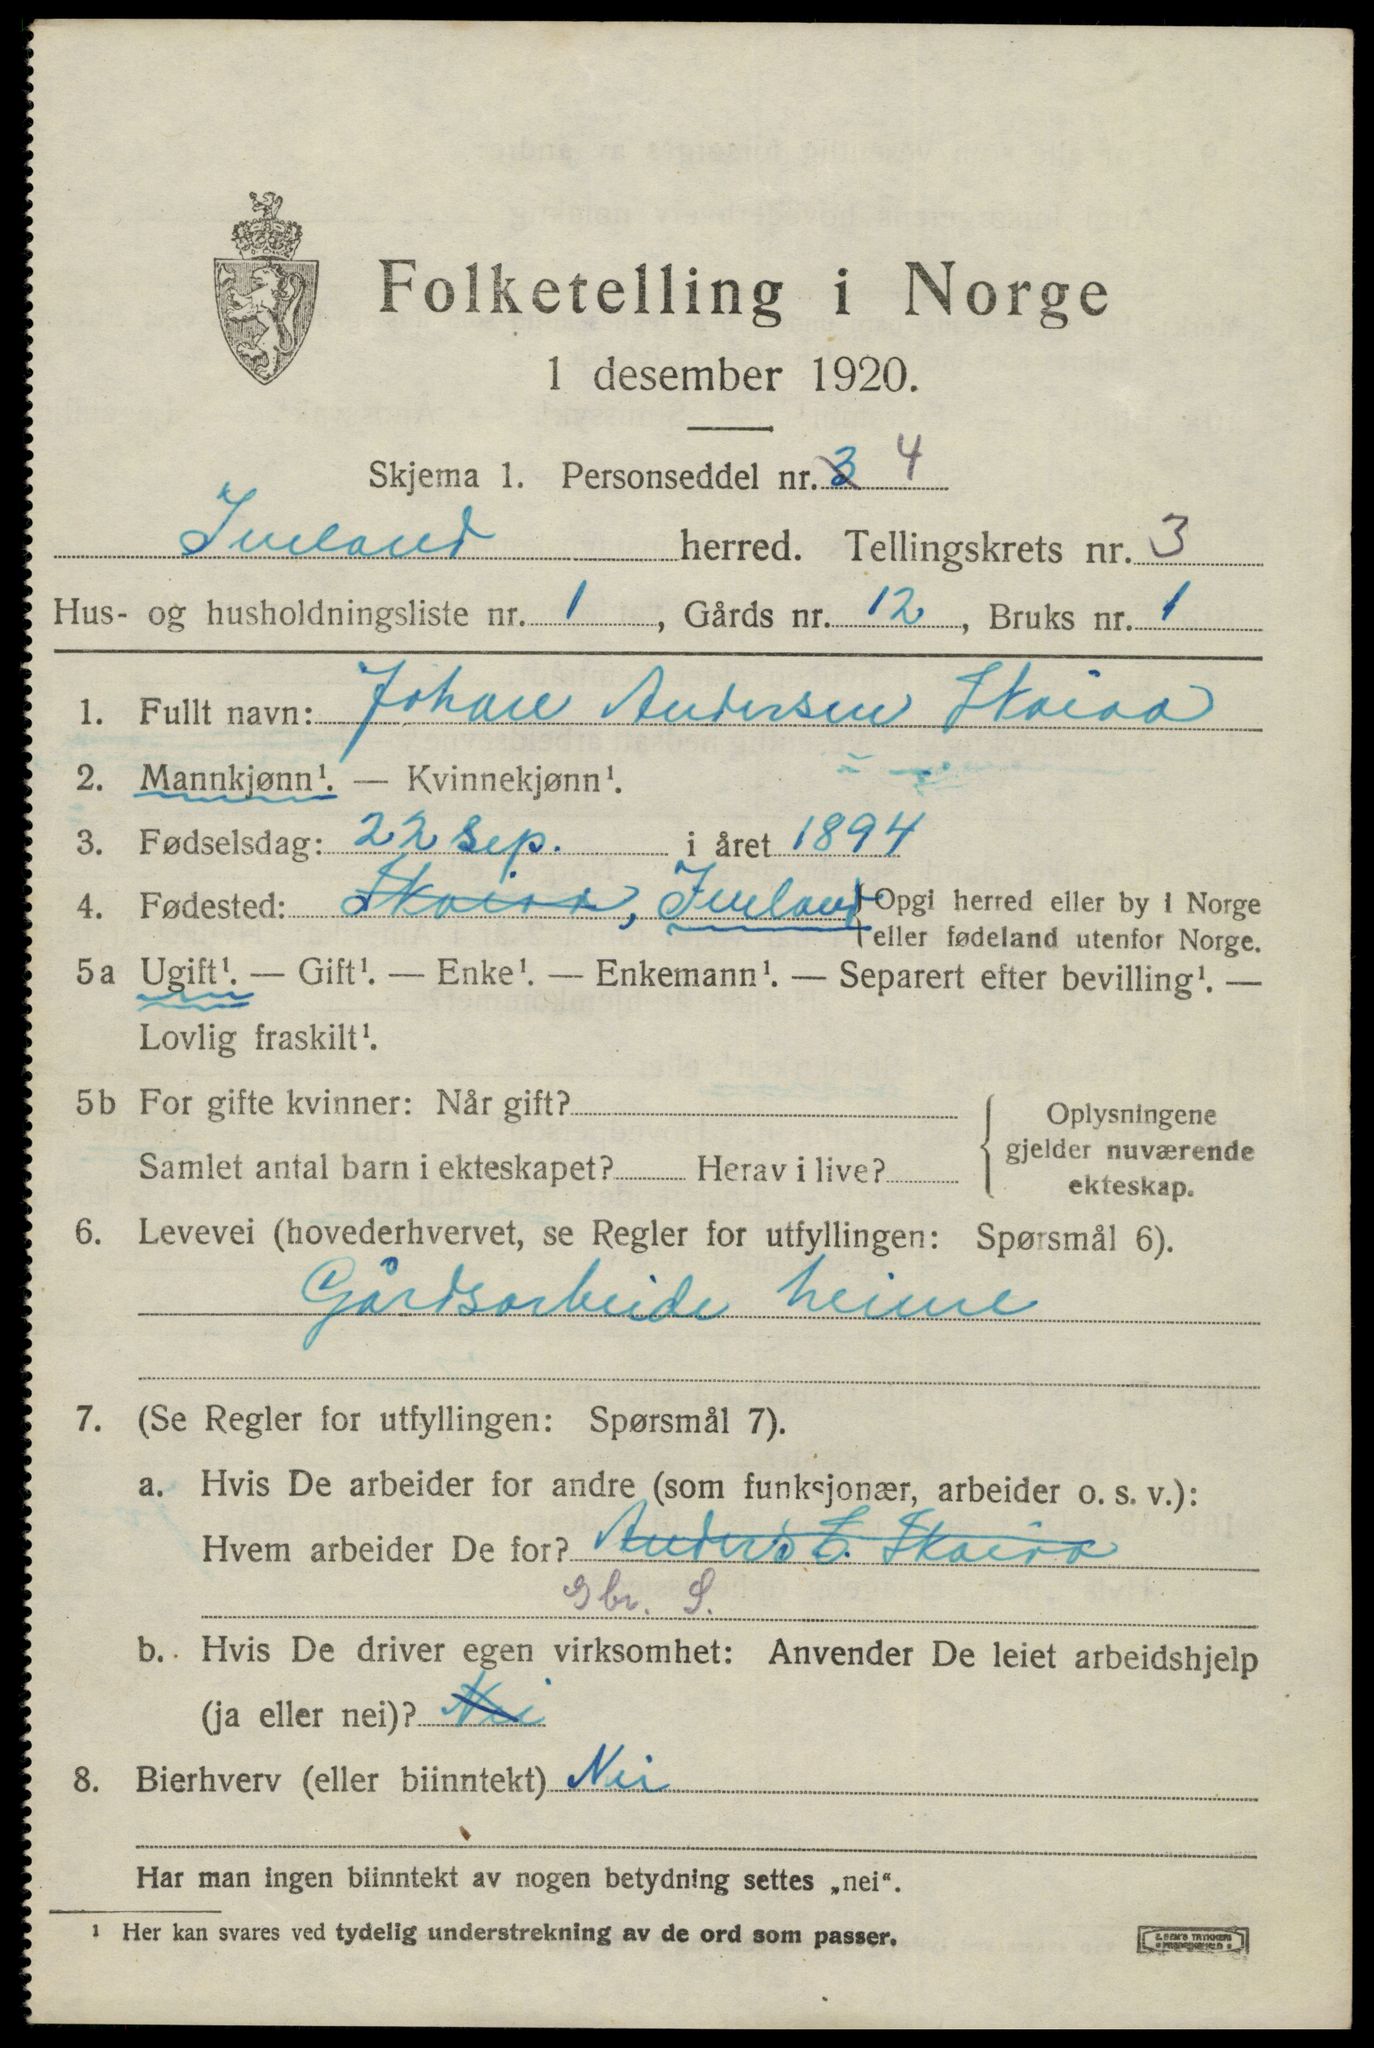 Folketelling i Norge
1 desember 1920.
Skjema 1. Personseddel nr. 3 4
Iveland herred. Tellingskrets nr. 3
Hus- og husholdningsliste nr. 1, Gårds nr. 12, Bruks nr. 1
1. Fullt navn: Johan Andersen Skaiaa
2. Mannkjønn¹. — Kvinnekjønn¹.
3. Fødselsdag: 22 sep. i året 1894
4. Fødested: Skaiaa, Iveland {Opgi herred eller by i Norge
eller fødeland utenfor Norge.
5a Ugift¹. — Gift¹. — Enke¹. — Enkemann¹. — Separert efter bevilling¹. —
Lovlig fraskilt¹.
5b For gifte kvinner: Når gift?
Samlet antal barn i ekteskapet? Herav i live?
{ Oplysningene
gjelder nuværende
ekteskap.
6. Levevei (hovederhvervet, se Regler for utfyllingen: Spørsmål 6).
Gårdsarbeide heime
7. (Se Regler for utfyllingen: Spørsmål 7).
a. Hvis De arbeider for andre (som funksjonær, arbeider o. s. v.):
Hvem arbeider De for? Anders E. Skaiaa
Gbr. S.
b. Hvis De driver egen virksomhet: Anvender De leiet arbeidshjelp
(ja eller nei)? Nei
8. Bierhverv (eller biinntekt) Nei
Har man ingen biinntekt av nogen betydning settes „nei“.
¹ Her kan svares ved tydelig understrekning av de ord som passer.